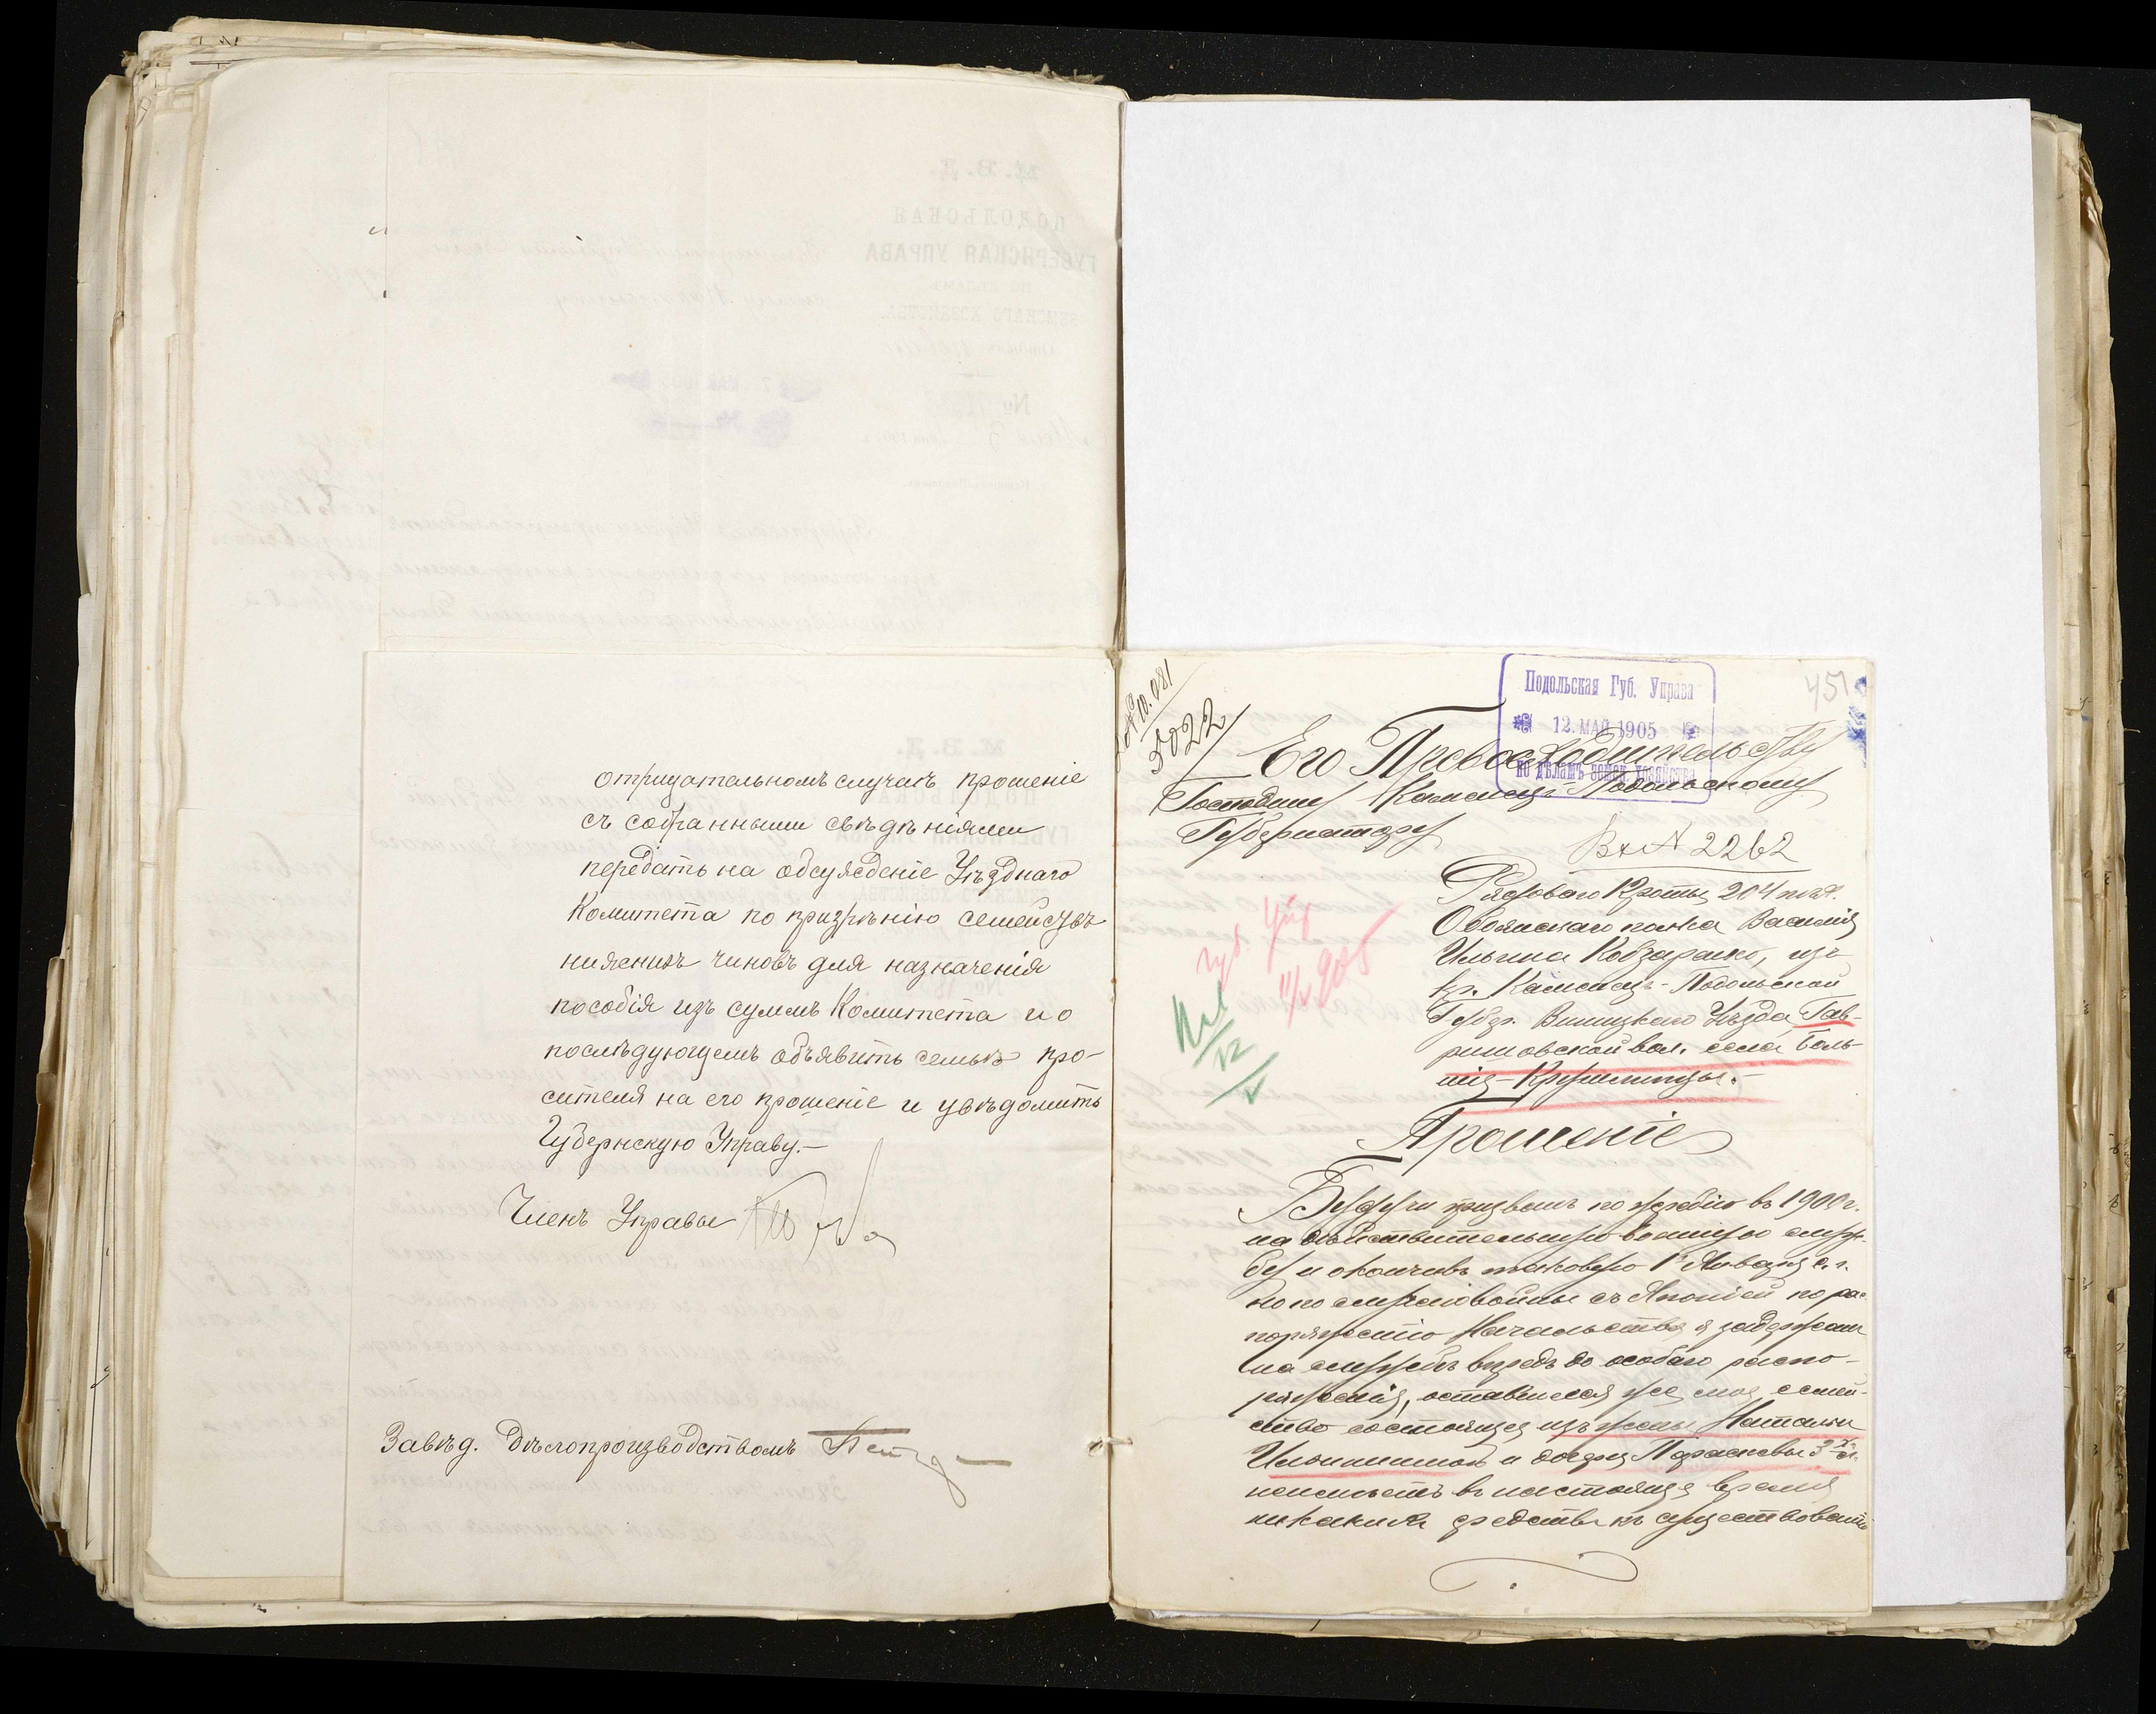 отрицательномъ случаѣ прошеніе
съ собранными свѣдѣніями
передать на обсужденіе Уѣзднаго
Комитета по призрѣнію семействъ
нижнихъ чиновъ для назначенія
пособія изъ суммъ Комитета и о
послѣдующемъ объявить семьѣ про-
сителя на его прошеніе и увѣдомить
Губернскую Управу.—
Членъ Управы
Завѣд. дѣлопроизводствомъ
№ 10.081
5022
Подольская Губ. Управа
12 МАЙ 1905
по дѣламъ земск. хозяйства
451
Его Превосходительству
Господину Каменецъ-Подольскому
Губернатору
Вх № 2262
Рядового 204 пѣх.
Обоянскаго полка Василія
Ильина Кобзаренко, изъ
кр. Каменецъ-Подольской
Губер. Винницкаго Уѣзда, Гав-
ришовской вол. села Боль-
шія-Крушлинцы.—
Губ. Упр
11/V 905
12/V
Прошеніе
Будучи призванъ по жребію въ 1900 г.
на дѣйствительную военную служ-
бу и окончивъ таковую 1го Января с. г.
но по случаю войны съ Японіей по рас-
поряженію Начальства я задержанъ
на службѣ впредь до особаго распо-
ряженія, оставшееся же мое семей-
ство состоящее изъ жены Наталіи
и дочери Параскевы 3х л.
неимѣетъ въ настоящее время
никакихъ средствъ къ существованію